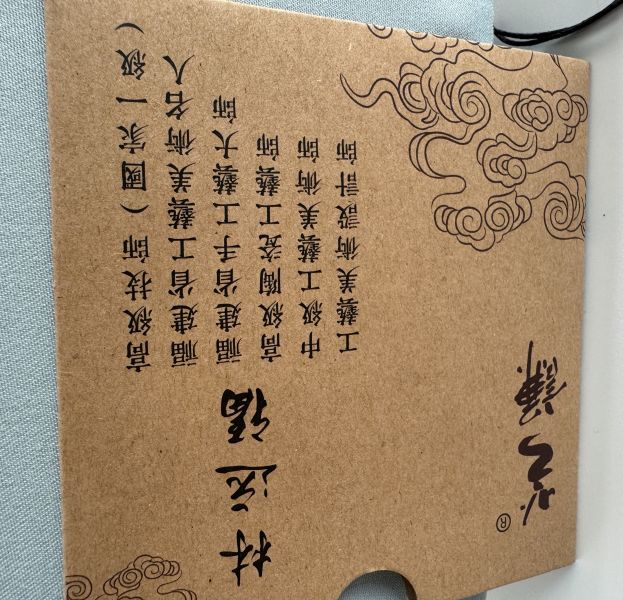 林 福
高級技師（國家一級）
福建省工藝美術名人
福建省手工藝大師
高級陶瓷工藝師
中級工藝美術師
工藝美術設計師
®